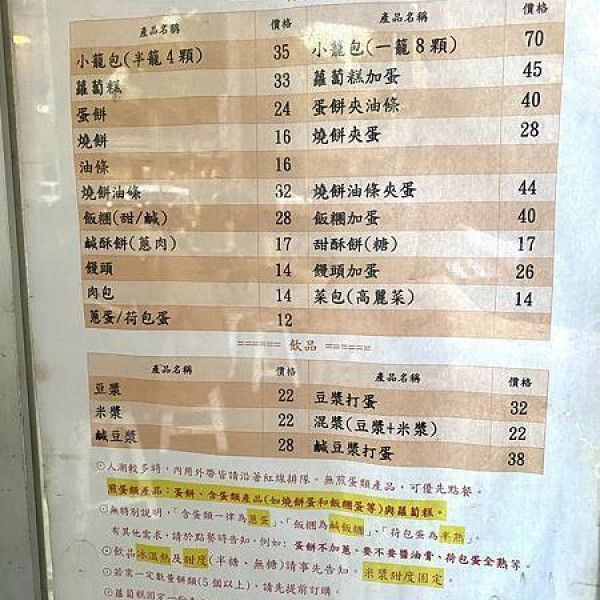 產品名稱 價格 產品名稱 價格
小籠包(半籠4顆) 35 小籠包(一籠8顆) 70
蘿蔔糕 33 蘿蔔糕加蛋 45
蛋餅 24 蛋餅夾油條 40
燒餅 16 燒餅夾蛋 28
油條 16
燒餅油條 32 燒餅油條夾蛋 44
飯糰(甜/鹹) 28 飯糰加蛋 40
鹹酥餅(蔥肉) 17 甜酥餅(糖) 17
饅頭 14 饅頭加蛋 26
肉包 14 菜包(高麗菜) 14
蔥蛋/荷包蛋 12
====== 飲品 ======
產品名稱 價格 產品名稱 價格
豆漿 22 豆漿打蛋 32
米漿 22 混漿(豆漿+米漿) 22
鹹豆漿 28 鹹豆漿打蛋 38
⊙人潮較多時，內用外帶皆請沿著紅線排隊。無煎蛋類產品，可優先點餐。
煎蛋類產品：蛋餅、含蛋類產品(如燒餅蛋和飯糰蛋等)與蘿蔔糕。
⊙無特別說明，「含蛋類一律為蔥蛋」、「飯糰為鹹飯糰」、「荷包蛋為半熟」。
有其他需求，請於點餐時告知，例如：蛋餅不加蔥、要不要醬油膏、荷包蛋全熟等。
⊙飲品冰溫熱及甜度(半糖、無糖)請事先告知。米漿甜度固定。
⊙若需一定數量餅類(5個以上)，請先提前訂購。